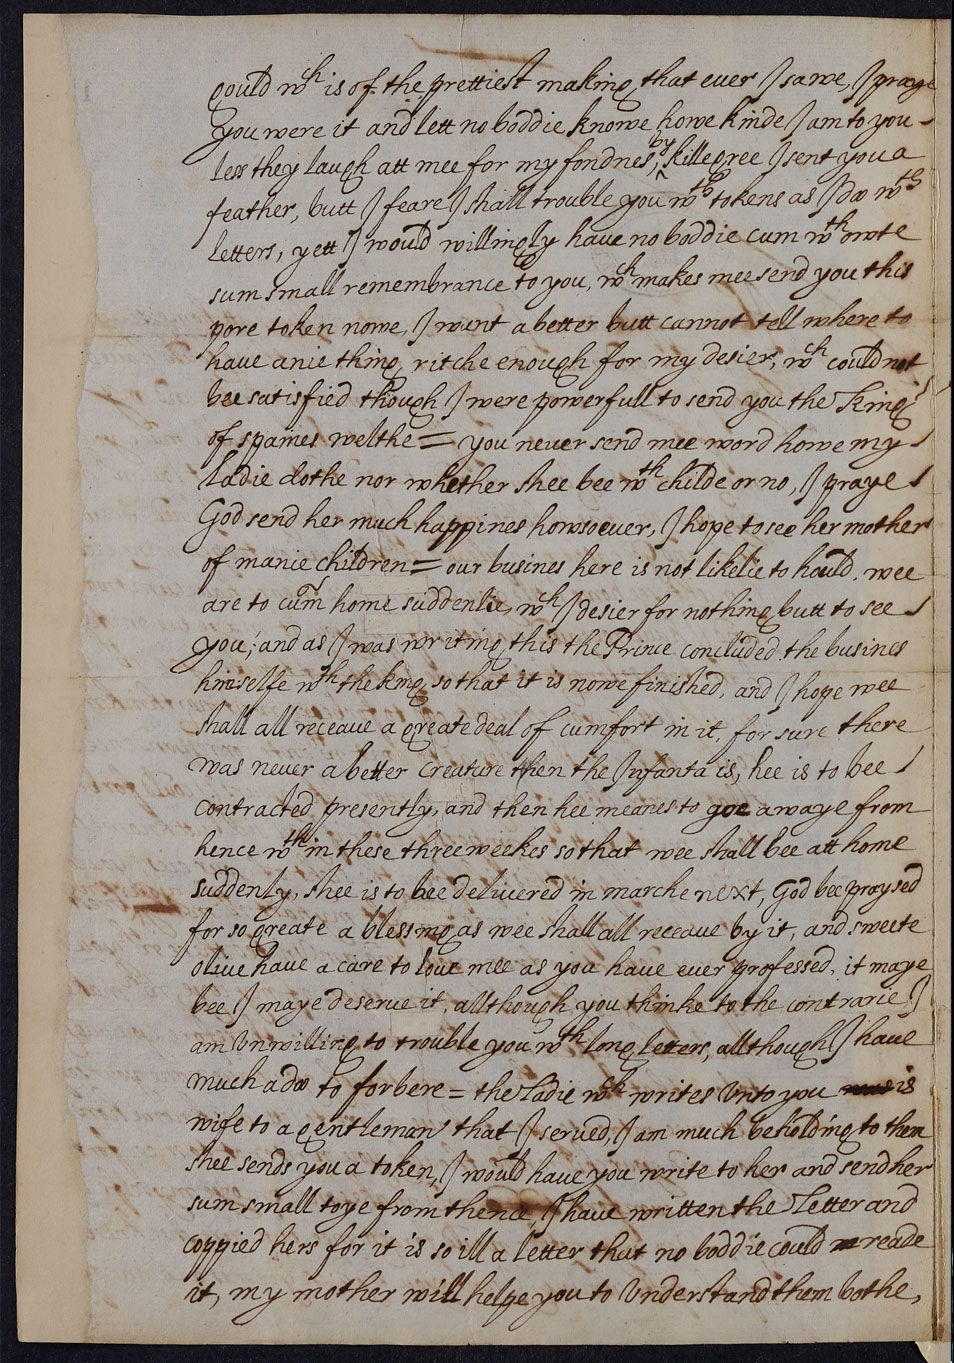 gould wch is of the prettiest making that ever I sawe, I praye
you were it and lett no boddie knowe howe kinde I am to you
less they laugh att mee for my fondnes, by killegree I sent you a
feather, butt I feare I shall trouble you wth tokens as I doo wth
letters, yett I would willingly have no boddie cum wthowte
sum small remembrance to you, wch makes mee send you this
pore token nowe, I want a better butt cannot tell where to
have anie thing ritche enough for my desier, wch could not
bee satisfied though I were powerfull to send you the King
of spaines welthe = you never send mee word howe my
Ladie dothe nor whether shee bee wth childe or no, I praye
God send her much happines howsoever, I hope to see her mother
of manie children = our busines here is not likelie to hould, wee
are to cum home suddenlie, wch I desier for nothing butt to see
you; and as I was writing this the Prince concluded the busines
himselfe wth the king so that it is nowe finished, and I hope wee
shall all receave a greate deal of cumfort in it, for sure there
was never a better creature then the Infanta is, hee is to bee
contracted presently, and then hee meanes to goe awaye from
hence wthin these three weekes so that wee shall bee att home
suddenly, shee is to bee delivered in marche next, God bee praysed
for so greate a blessing as wee shall all receave by it, and sweete
olive have a care to love mee as you have ever professed, it maye
bee I maye deserve it, allthough you thinke to the contrarie I
am Unwilling to trouble you wth long letters, allthough I have
much adoo to forbere = the Ladie wch writes Unto you is
wife to a gentleman that I served, I am much beholding to them
shee sends you a token, I would have you write to her and send her
sum small toye from thence, I have written the Letter and
coppied hers for it is so ill a letter that no boddie could reade
it, my mother will helpe you to Understand them bothe,